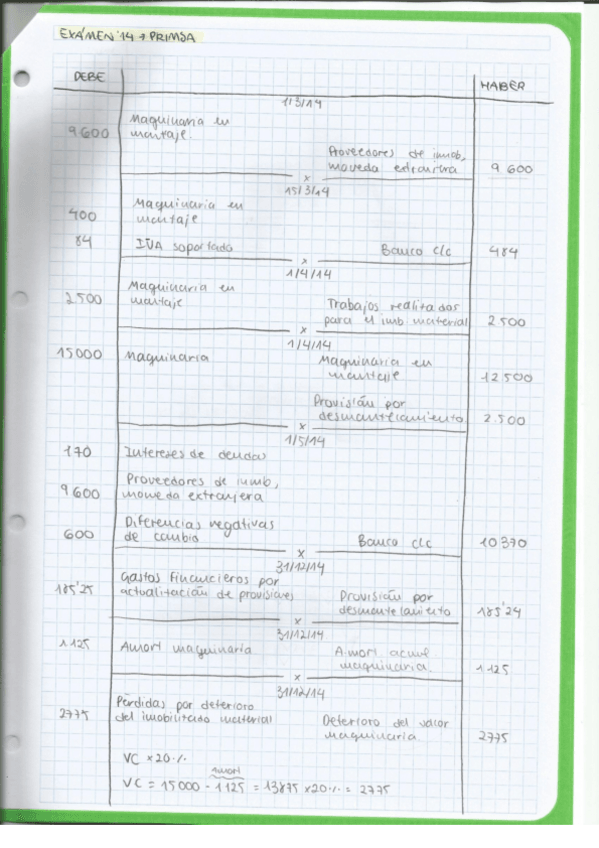 EXÁMEN '14 → PRIMSA
DEBE
HABER
1/3/14
9600 Maquinaria en
montaje.
Proveedores de inmb,
moneda extranjera 9 600
x
15/3/14
400 Maquinaria en
montaje
84 IVA soportado Banco c/c 484
x
1/4/14
2500 Maquinaria en
montaje
Trabajos realizados
para el imb material 2.500
x
1/4/14
15000 Maquinaria Maquinaria en
montaje 12 500
Provisión por
desmantelamiento 2.500
x
1/5/14
170 Intereses de deudas
9600 Proveedores de inmb,
moneda extranjera
600 Diferencias negativas
de cambio Banco c/c 10370
x
31/12/14
185'25 Gastos financieros por
actualización de provisiones Provisión por
desmantelamiento 185'24
x
31/12/14
1125 Amort maquinaria Amort acumul
maquinaria. 1 125
x
31/12/14
2775 Pérdidas por deterioro
del imobilizado material Deterioro del valor
maquinaria 2775
VC × 20 %
amort
VC = 15000 - 1125 = 13875 × 20 % = 2775